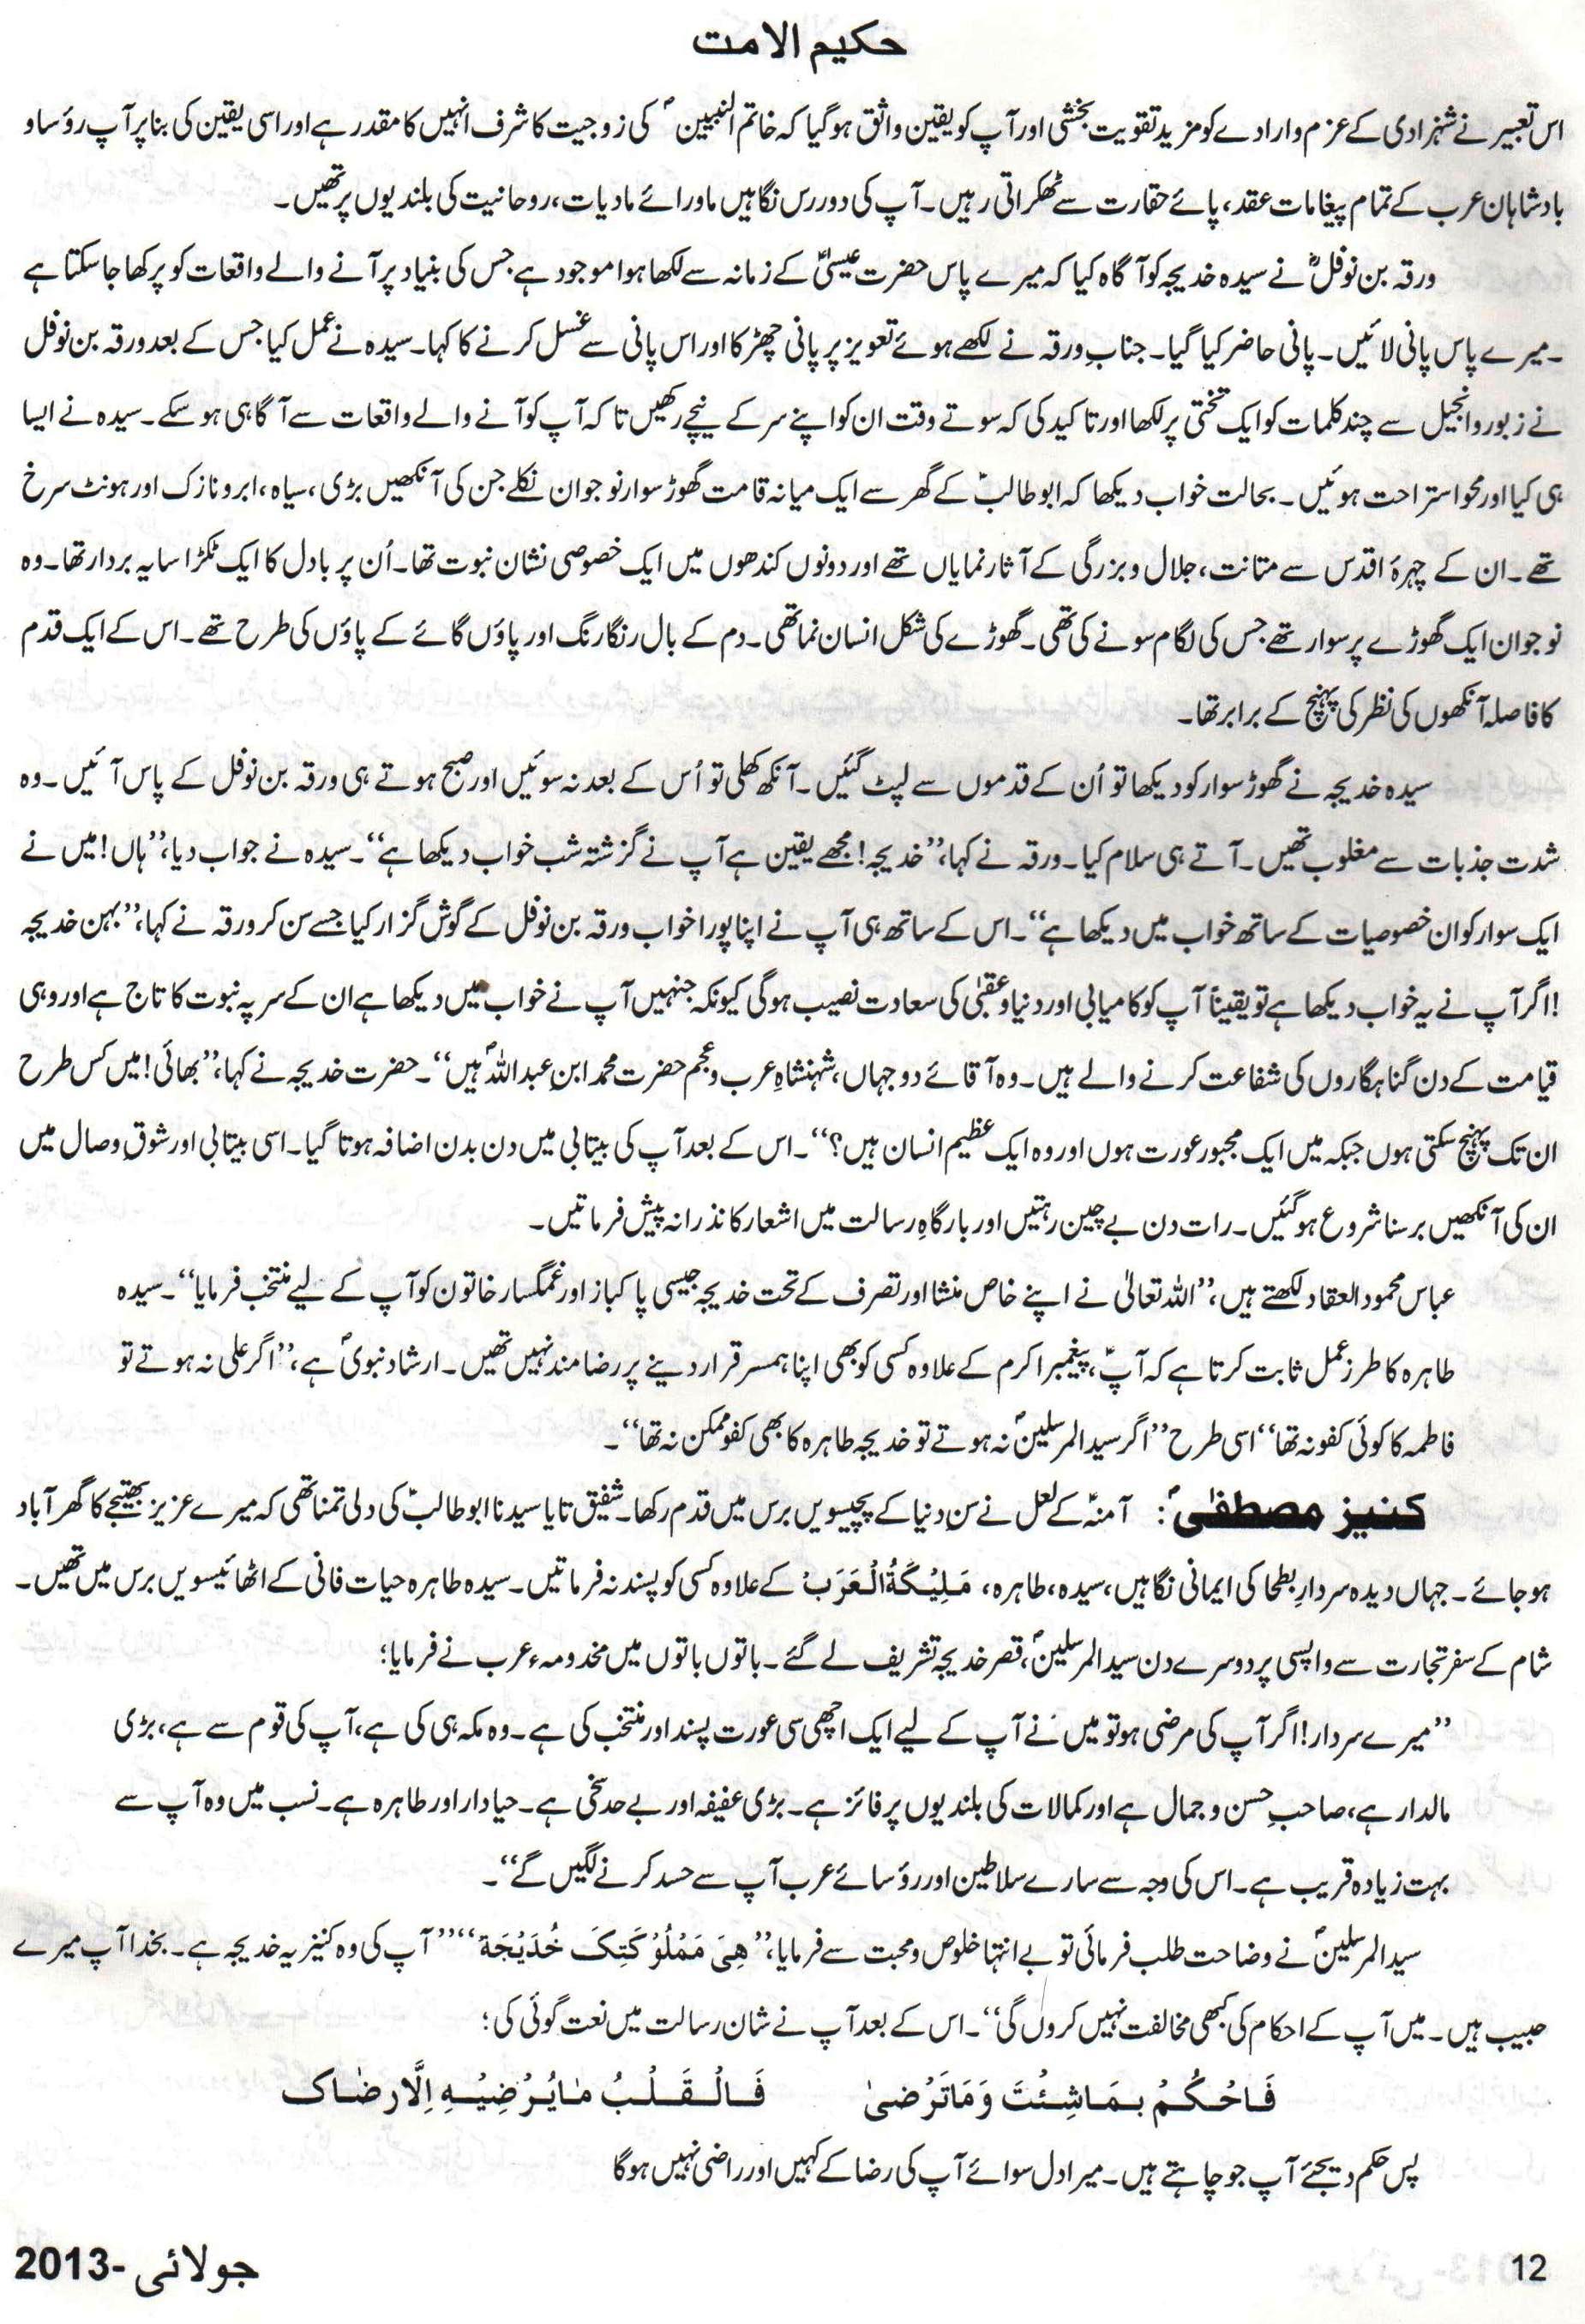 حکیم الامت
اس تعبیر نے شہزادی کے عزم و ارادے کو مزید تقویت بخشی اور آپ کو یقین واثق ہوگیا کہ خاتم النبیینؐ کی زوجیت کا شرف انہیں کا مقدر ہے اور اسی یقین کی بنا پر آپ رؤسا و
بادشاہان عرب کے تمام پیغامات عقد، پائے حقارت سے ٹھکراتی رہیں۔ آپ کی دور رس نگاہیں ماورائے مادیات، روحانیت کی بلندیوں پر تھیں۔
ورقہ بن نوفلؓ نے سیدہ خدیجہ کو آگاہ کیا کہ میرے پاس حضرت عیسیٰؑ کے زمانہ سے لکھا ہوا موجود ہے جس کی بنیاد پر آنے والے واقعات کو پرکھا جاسکتا ہے
۔ میرے پاس پانی لائیں۔ پانی حاضر کیا گیا۔ جناب ورقہ نے لکھے ہوئے تعویز پر پانی چھڑکا اور اس پانی سے غسل کرنے کا کہا۔ سیدہ نے عمل کیا جس کے بعد ورقہ بن نوفل
نے زبور و انجیل سے چند کلمات کو ایک تختی پر لکھا اور تاکید کی کہ سوتے وقت ان کو اپنے سر کے نیچے رکھیں تاکہ آپ کو آنے والے واقعات سے آگاہی ہو سکے۔ سیدہ نے ایسا
ہی کیا اور محو استراحت ہوئیں۔ بحالت خواب دیکھا کہ ابو طالبؑ کے گھر سے ایک میانہ قامت گھوڑ سوار نوجوان نکلے جن کی آنکھیں بڑی، سیاہ، ابرو نازک اور ہونٹ سرخ
تھے۔ ان کے چہرۂ اقدس سے متانت، جلال و بزرگی کے آثار نمایاں تھے اور دونوں کندھوں میں ایک خصوصی نشان نبوت تھا۔ اُن پر بادل کا ایک ٹکڑا سایہ بردار تھا۔ وہ
نوجوان ایک گھوڑے پر سوار تھے جس کی لگام سونے کی تھی۔ گھوڑے کی شکل انسان نما تھی۔ دم کے بال رنگا رنگ اور پاؤں گائے کے پاؤں کی طرح تھے۔ اس کے ایک قدم
کا فاصلہ آنکھوں کی نظر کی پہنچ کے برابر تھا۔
سیدہ خدیجہ نے گھوڑ سوار کو دیکھا تو اُن کے قدموں سے لپٹ گئیں۔ آنکھ کھلی تو اُس کے بعد نہ سوئیں اور صبح ہوتے ہی ورقہ بن نوفل کے پاس آئیں۔ وہ
شدت جذبات سے مغلوب تھیں۔ آتے ہی سلام کیا۔ ورقہ نے کہا، ’’خدیجہ! مجھے یقین ہے آپ نے گزشتہ شب خواب دیکھا ہے‘‘۔ سیدہ نے جواب دیا، ’’ہاں! میں نے
ایک سوار کو ان خصوصیات کے ساتھ خواب میں دیکھا ہے‘‘۔ اس کے ساتھ ہی آپ نے اپنا پورا خواب ورقہ بن نوفل کے گوش گزار کیا جسے سن کر ورقہ نے کہا، ’’بہن خدیجہ
!اگر آپ نے یہ خواب دیکھا ہے تو یقیناً آپ کو کامیابی اور دنیا و عقبیٰ کی سعادت نصیب ہوگی کیونکہ جنہیں آپ نے خواب میں دیکھا ہے ان کے سر پہ نبوت کا تاج ہے اور وہی
قیامت کے دن گناہگاروں کی شفاعت کرنے والے ہیں۔ وہ آقائے دو جہاں، شہنشاہِ عرب و عجم حضرت محمد ابنِ عبداللہؐ ہیں‘‘۔ حضرت خدیجہ نے کہا، ’’بھائی! میں کس طرح
ان تک پہنچ سکتی ہوں جبکہ میں ایک مجبور عورت ہوں اور وہ ایک عظیم انسان ہیں؟‘‘۔ اس کے بعد آپ کی بیتابی میں دن بدن اضافہ ہوتا گیا۔ اسی بیتابی اور شوقِ وصال میں
ان کی آنکھیں برسنا شروع ہوگئیں۔ رات دن بے چین رہتیں اور بارگاہِ رسالت میں اشعار کا نذرانہ پیش فرماتیں۔
عباس محمود العقاد لکھتے ہیں، ’’اللہ تعالیٰ نے اپنے خاص منشا اور تصرف کے تحت خدیجہ جیسی پاکباز اور غمگسار خاتون کو آپ کے لیے منتخب فرمایا‘‘۔ سیدہ
طاہرہ کا طرز عمل ثابت کرتا ہے کہ آپؐ، پیغمبر اکرم کے علاوہ کسی کو بھی اپنا ہمسر قرار دینے پر رضامند نہیں تھیں۔ ارشاد نبویؐ ہے، ’’اگر علی نہ ہوتے تو
فاطمہ کا کوئی کفو نہ تھا‘‘ اسی طرح ’’اگر سید المرسلینؐ نہ ہوتے تو خدیجہ طاہرہ کا بھی کفو ممکن نہ تھا‘‘۔
کنیز مصطفیٰؐ: آمنہؑ کے لعل نے سنِ دنیا کے پچیسویں برس میں قدم رکھا۔ شفیق تایا سیدنا ابو طالبؑ کی دلی تمنا تھی کہ میرے عزیز بھتیجے کا گھر آباد
ہوجائے۔ جہاں دیدہ سردارِ بطحا کی ایمانی نگاہیں، سیدہ، طاہرہ، مَلِیْکَۃُ الْعَرَبْ کے علاوہ کسی کو پسند نہ فرماتیں۔ سیدہ طاہرہ حیات فانی کے اٹھائیسویں برس میں تھیں۔
شام کے سفر تجارت سے واپسی پر دوسرے دن سید المرسلینؐ، قصر خدیجہ تشریف لے گئے۔ باتوں باتوں میں مخدومہء عرب نے فرمایا؛
’’میرے سردار! اگر آپ کی مرضی ہو تو میں نے آپ کے لیے ایک اچھی سی عورت پسند اور منتخب کی ہے۔ وہ مکہ ہی کی ہے، آپ کی قوم سے ہے، بڑی
مالدار ہے، صاحبِ حسن و جمال ہے اور کمالات کی بلندیوں پر فائز ہے۔ بڑی عفیفہ اور بے حد سخی ہے۔ حیادار اور طاہرہ ہے۔ نسب میں وہ آپ سے
بہت زیادہ قریب ہے۔ اس کی وجہ سے سارے سلاطین اور رؤسائے عرب آپ سے حسد کرنے لگیں گے‘‘۔
سید المرسلینؐ نے وضاحت طلب فرمائی تو بے انتہا خلوص و محبت سے فرمایا، ’’ھِیَ مَمْلُوْکَتِکَ خُدَیْجَۃ‘‘ ’’آپ کی وہ کنیز یہ خدیجہ ہے۔ بخدا آپ میرے
حبیب ہیں۔ میں آپ کے احکام کی کبھی مخالفت نہیں کروں گی‘‘۔ اس کے بعد آپ نے شان رسالت میں نعت گوئی کی؛
فَاحْکُمْ بِمَاشِئْتَ وَمَاتَرْضیٰ فَالْقَلْبُ مَایُرْضِیْہِ اِلَّا رِضَاک
پس حکم دیجئے آپ جو چاہتے ہیں۔ میرا دل سوائے آپ کی رضا کے کہیں اور راضی نہیں ہوگا
12
جولائی -2013